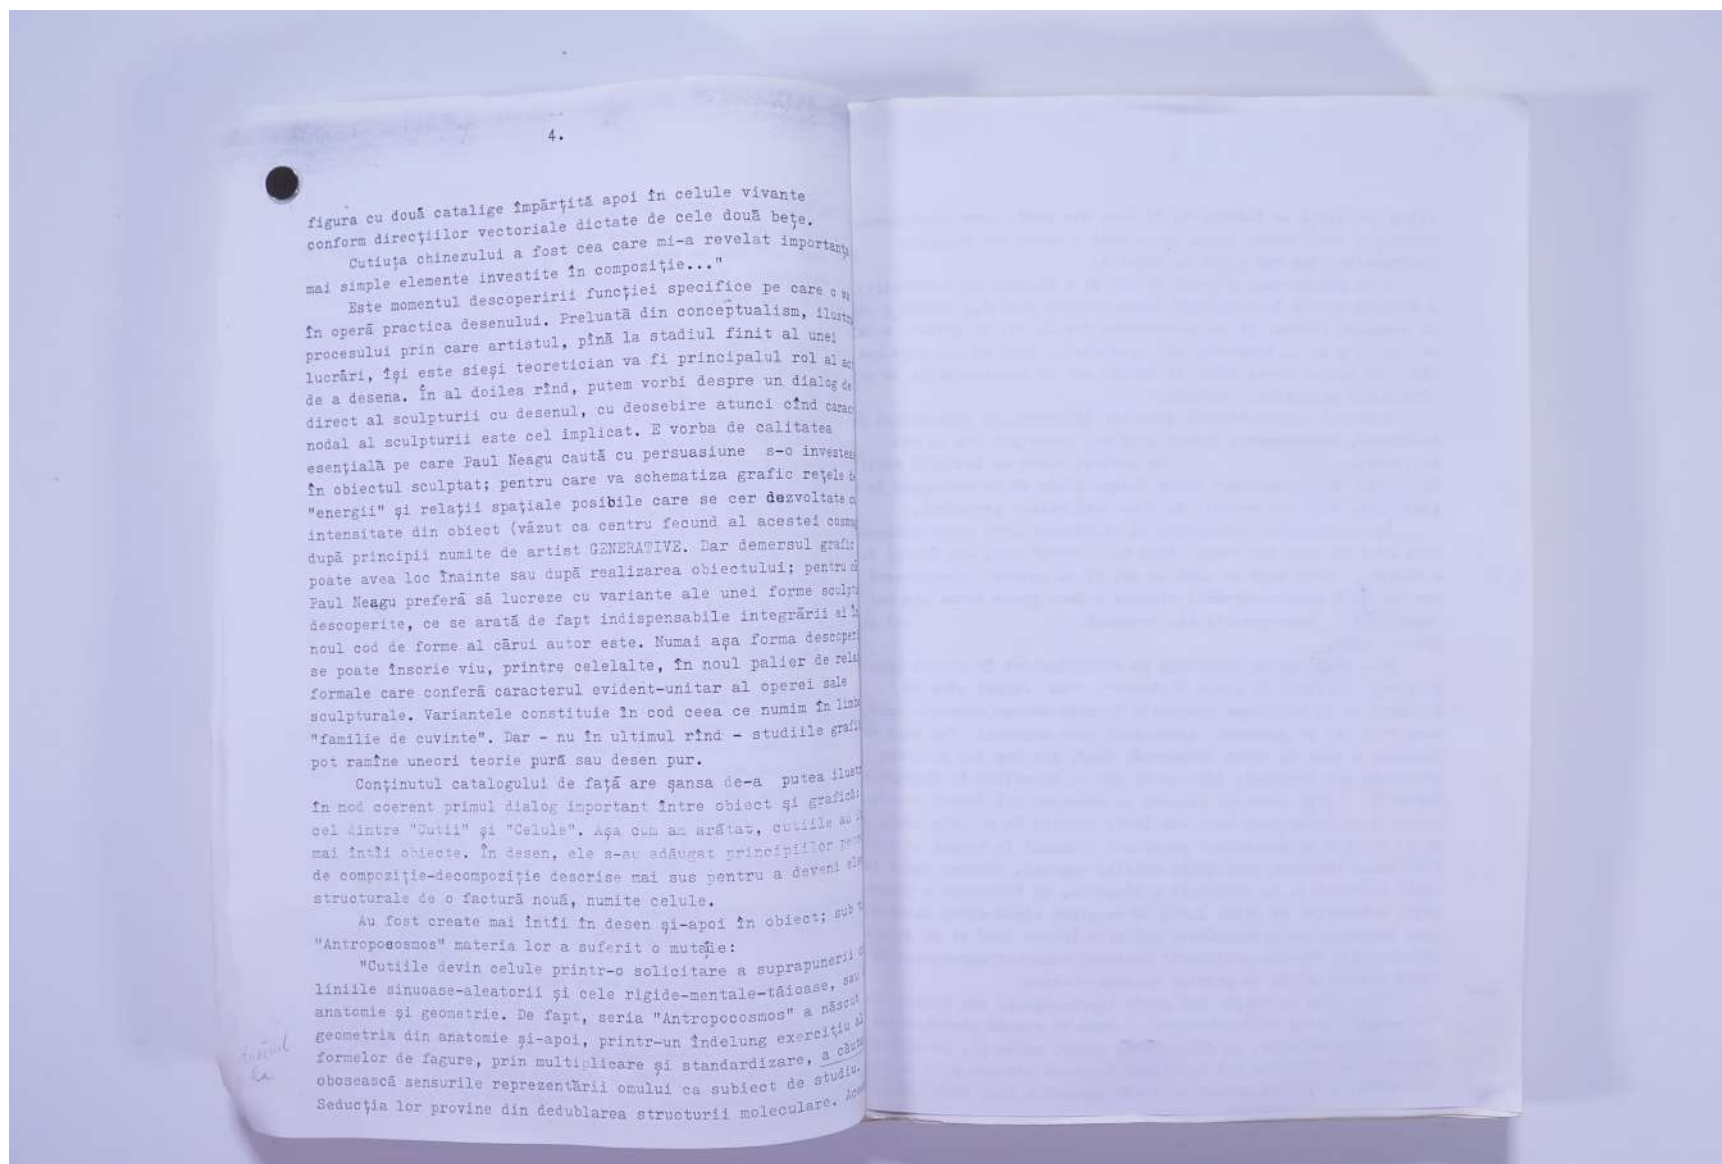 4.
figura cu două catalige împărțită apoi în celule vivante
conform direcțiilor vectoriale dictate de cele două bețe.
Cutiuța chinezului a fost cea care mi-a revelat importanța
mai simple elemente investite în compoziție..."
Este momentul descoperirii funcției specifice pe care o va
în operă practica desenului. Preluată din conceptualism, ilustr
procesului prin care artistul, pînă la stadiul finit al unei
lucrări, își este sieși teoretician va fi principalul rol al ac
de a desena. În al doilea rînd, putem vorbi despre un dialog de
direct al sculpturii cu desenul, cu deosebire atunci cînd carac
nodal al sculpturii este cel implicat. E vorba de calitatea
esențială pe care Paul Neagu caută cu persuasiune s-o investeas
în obiectul sculptat; pentru care va schematiza grafic rețele de
"energii" și relații spațiale posibile care se cer dezvoltate c
intensitate din obiect (văzut ca centru fecund al acestei cosmo
după principii numite de artist GENERATIVE. Dar demersul grafic
poate avea loc înainte sau după realizarea obiectului; pentru că
Paul Neagu preferă să lucreze cu variante ale unei forme sculpt
descoperite, ce se arată de fapt indispensabile integrării ei în
noul cod de forme al cărui autor este. Numai așa forma descoper
se poate înscrie viu, printre celelalte, în noul palier de rela
formale care conferă caracterul evident-unitar al operei sale
sculpturale. Variantele constituie în cod ceea ce numim în limb
"familie de cuvinte". Dar - nu în ultimul rînd - studiile grafi
pot ramîne uneori teorie pură sau desen pur.
Conținutul catalogului de față are șansa de-a putea ilust
în mod coerent primul dialog important între obiect și grafică:
cel dintre "Cutii" și "Celule". Așa cum am arătat, cutiile au
mai întîi obiecte. În desen, ele s-au adăugat principiilor
de compoziție-decompoziție descrise mai sus pentru a deveni ele
structurale de o factură nouă, numite celule.
Au fost create mai întîi în desen și-apoi în obiect; sub t
"Antropocosmos" materia lor a suferit o mutație:
"Cutiile devin celule printr-o solicitare a suprapunerii
liniile sinuoase-aleatorii și cele rigide-mentale-tăioase, sau
anatomie și geometrie. De fapt, seria "Antropocosmos" a născut
geometria din anatomie și-apoi, printr-un îndelung exercițiu al
formelor de fagure, prin multiplicare și standardizare, a căuta
obosească sensurile reprezentării omului ca subiect de studiu.
Seducția lor provine din dedublarea structurii moleculare.